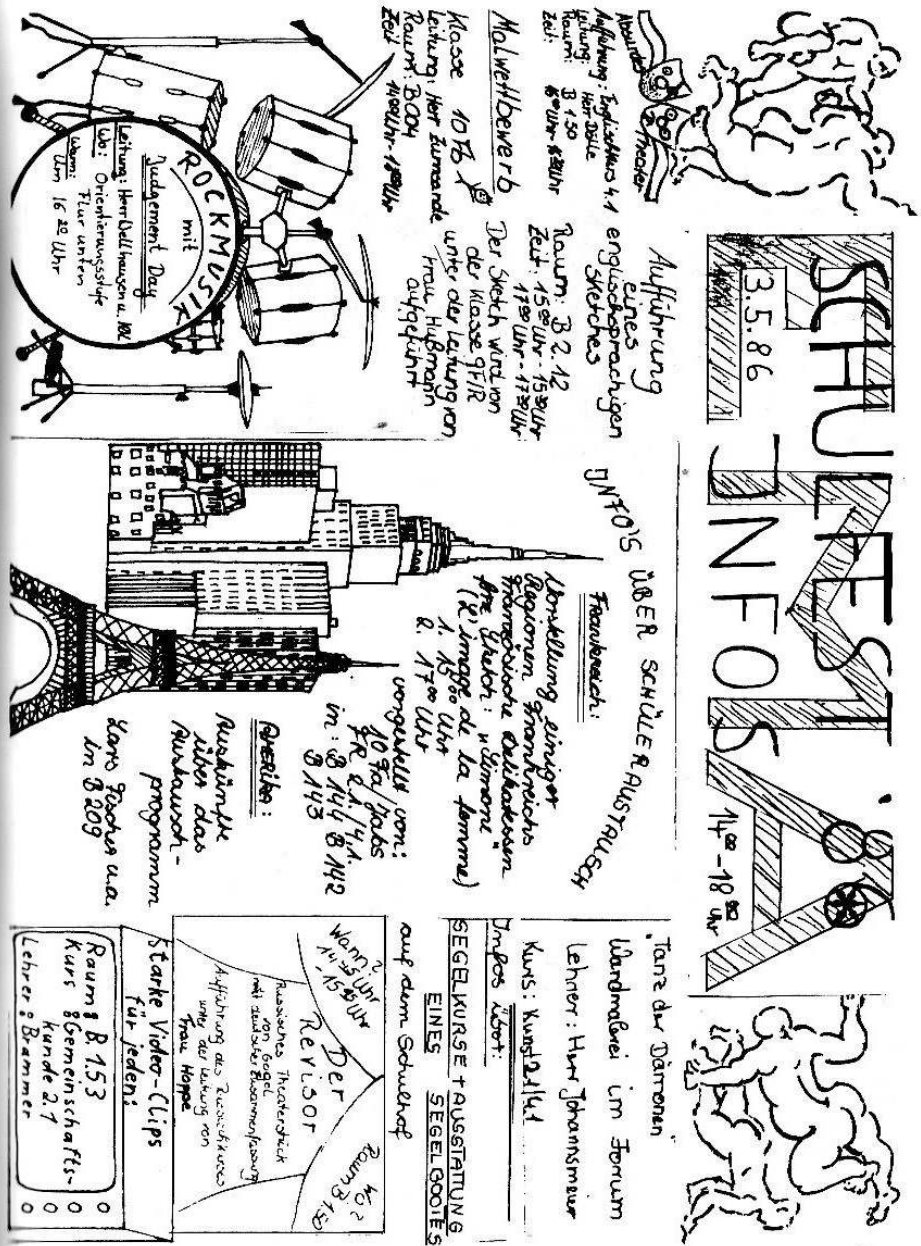 SCHULFEST '86
INFOS
3.5.86
14⁰⁰ - 18⁰⁰ Uhr
Absurdes Theater
Aufführung: Englischkurs 4.1
Leitung: Herr Bölle
Raum: B 1.50
Zeit:
Malwettbewerb
Klasse 10 Fb
Leitung: Herr Zumsande
Raum: B004
Zeit 14⁰⁰ Uhr - 18⁰⁰ Uhr
Aufführung
eines
englischsprachigen
Sketches
Raum: B 2.12
Zeit: 15⁰⁰ Uhr - 15³⁰ Uhr
17⁰⁰ Uhr - 17³⁰ Uhr
Der Sketch wird von
der Klasse 9F/R
unter der Leitung von
Frau Hußmann
aufgeführt
ROCKMUSIK
mit
Judgement Day
Leitung: Herr Dallhausen u. 10K
Wo: Orientierungsstufe
Flur unten
Wann:
Um 16 Uhr
INFO'S ÜBER SCHÜLERAUSTAUSCH
Frankreich:
Vorstellung einiger
Regionen Frankreichs
Französische Delikatessen
Art Sketch: "Simone"
(L'image de la femme)
1. 15⁰⁰ Uhr
2. 17⁰⁰ Uhr
vorgestellt von:
10 Fa/Gabs
FR 2.1/4.1.
in: B 144 B 142
B 143
AMERIKA:
Auskünfte
über das
Austausch-
programm
Lars Fischer u.a.
in B 209
"Tanz der Dämonen"
Wandmalerei im Forum
Lehrer: Herr Johannsmeier
Kurs: Kunst 2.1/4.1
Infos über:
SEGELKURSE + AUSSTATTUNG
EINES SEGELBOOTES
auf dem Schulhof
Wann?
14⁴⁵ Uhr
- 15 Uhr
Der
Revisor
Wo?
Raum B 1.3
Russisches Theaterstück
von Gogol
mit deutscher Zusammenfassung
Aufführung des Russischkurses
unter der Leitung von
Frau Hoppe
Starke Video-Clips
für jeden:
Raum: B.1.53
Kurs: Gemeinschafts-
kunde 2.1
Lehrer: Brammer